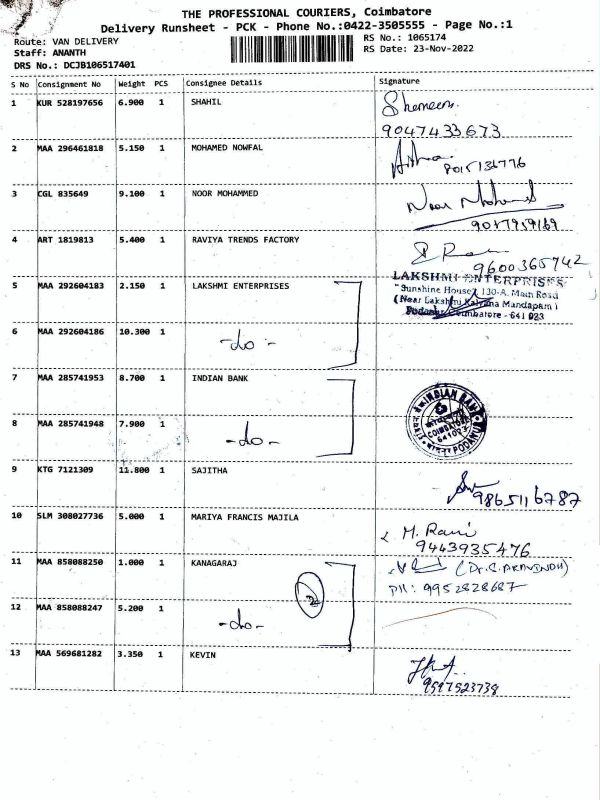 THE PROFESSIONAL COURIERS, Coimbatore
Delivery Runsheet - PCK - Phone No.:0422-3505555 - Page No.:1
Route: VAN DELIVERY
RS No.: 1065174
Staff: ANANTH
RS Date: 23-Nov-2022
DRS No.: DCJB106517401
S No Consignment No Weight PCS Consignee Details Signature
1 KUR 528197656 6.900 1 SHAHIL Shameem
9047433673
2 MAA 296461818 5.150 1 MOHAMED NOWFAL
8015136776
3 CGL 835649 9.100 1 NOOR MOHAMMED Noor Mohamed
4 ART 1819813 5.400 1 RAVIYA TRENDS FACTORY
9600365742
5 MAA 292604183 2.150 1 LAKSHMI ENTERPRISES LAKSHMI ENTERPRISES
"Sunshine House" 130-A, Main Road
(Near Lakshmi Kalyana Mandapam)
Podanur Coimbatore - 641 023
6 MAA 292604186 10.300 1 -do-
7 MAA 285741953 8.700 1 INDIAN BANK INDIAN BANK
COIMBATORE
641023
PODANUR
8 MAA 285741948 7.900 1 -do-
9 KTG 7121309 11.800 1 SAJITHA
9865116787
10 SLM 308027736 5.000 1 MARIYA FRANCIS MAJILA M. Rani
9443935476
11 MAA 858088250 1.000 1 KANAGARAJ (Dr.C.ARAVINDH)
PH: 9952828687
2
12 MAA 858088247 5.200 1 -do-
13 MAA 569681282 3.350 1 KEVIN
9597523738